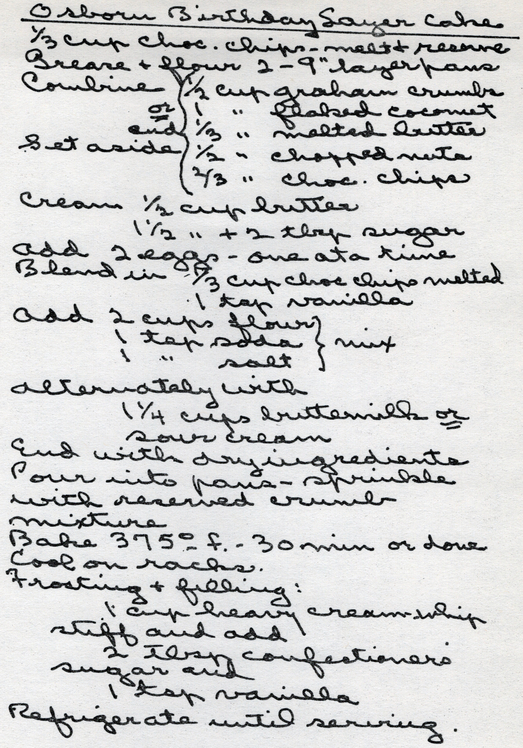 Osborn Birthday Layer Cake
1/3 cup choc. chips - melt & reserve
Grease + flour 2 - 9" layer pans
Combine 1/2 cup graham crumbs
or 1 " flaked coconut
and 1/3 " melted butter
Set aside 1/2 " chopped nuts
2/3 " choc. chips
Cream 1/2 cup butter
1 1/2 " + 2 tbsp sugar
Add 2 eggs - one at a time
Blend in 1/3 cup choc chips melted
1 tsp vanilla
Add 2 cups flour
1 tsp soda } mix
1 " salt
alternately with
1 1/4 cups buttermilk or
sour cream
End with dry ingredients
Pour into pans - sprinkle
with reserved crumb
mixture
Bake 375° F. - 30 min or done
Cool on racks.
Frosting + filling:
1 cup heavy cream-whip
stiff and add
2 Tbsp confectioners
sugar and
1 tsp vanilla
Refrigerate until serving.